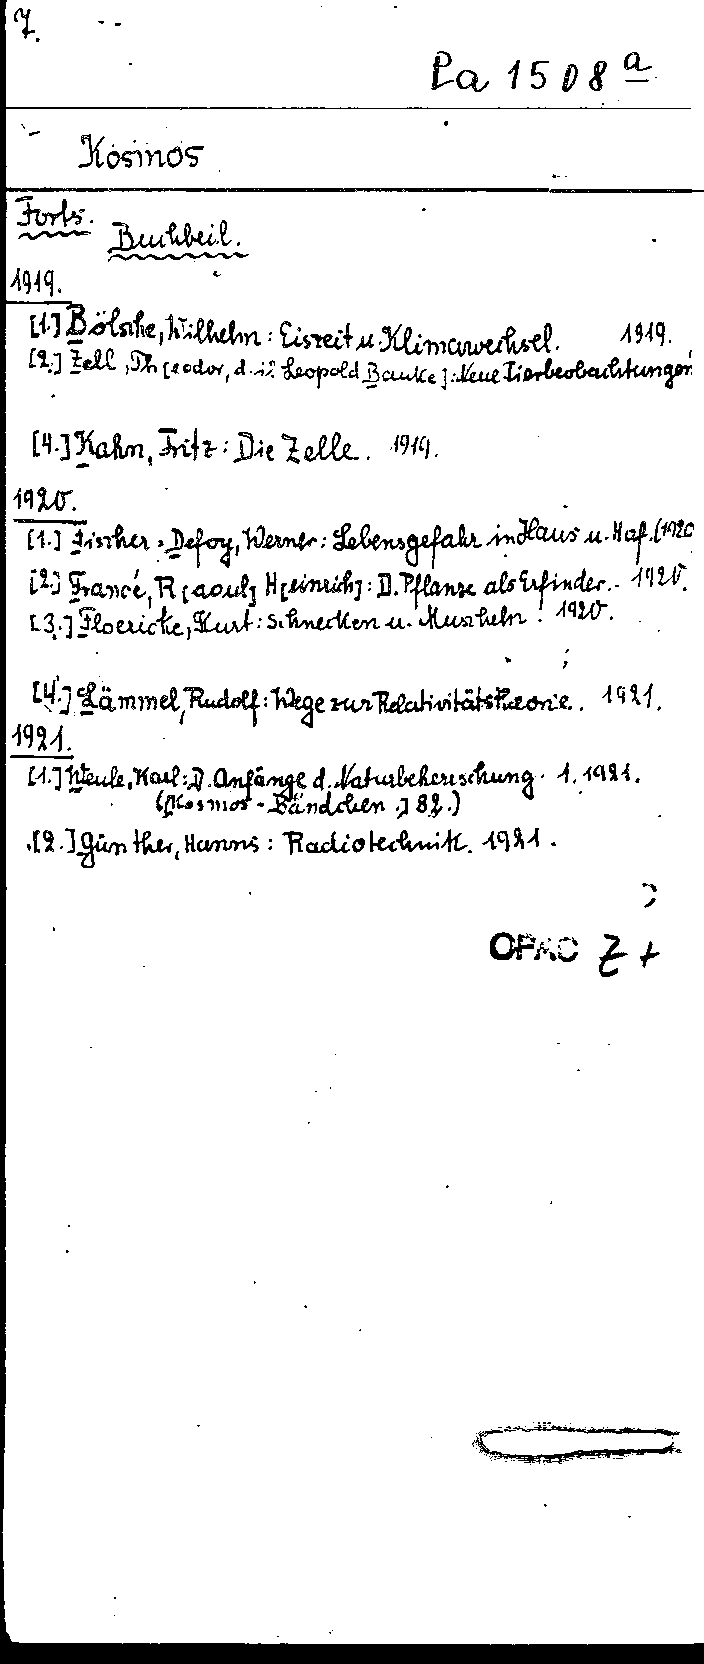 7.
La 1508 a
Kosmos
Forts.
Buchbeil.
1919.
[1.] Bölsche, Wilhelm: Eiszeit u. Klimawechsel. 1919.
[2.] Zell, Th[eodor, d. i. Leopold Bauke]: Neue Tierbeobachtungen
[4.] Kahn, Fritz: Die Zelle. 1919.
1920.
[1.] Fischer-Defoy, Werner: Lebensgefahr in Haus u. Hof. (1920
[2.] Francé, R[aoul] H[einrich]: D. Pflanze als Erfinder. 1920.
[3.] Floericke, Kurt: Schnecken u. Muscheln. 1920.
[4.] Lämmel, Rudolf: Wege zur Relativitätstheorie. 1921.
1921.
[1.] Weule, Karl: D. Anfänge d. Naturbeherrschung. 1. 1921.
([Kosmos-Bändchen.] 82.)
[2.] Günther, Hanns: Radiotechnik. 1921.
OPAC Z +